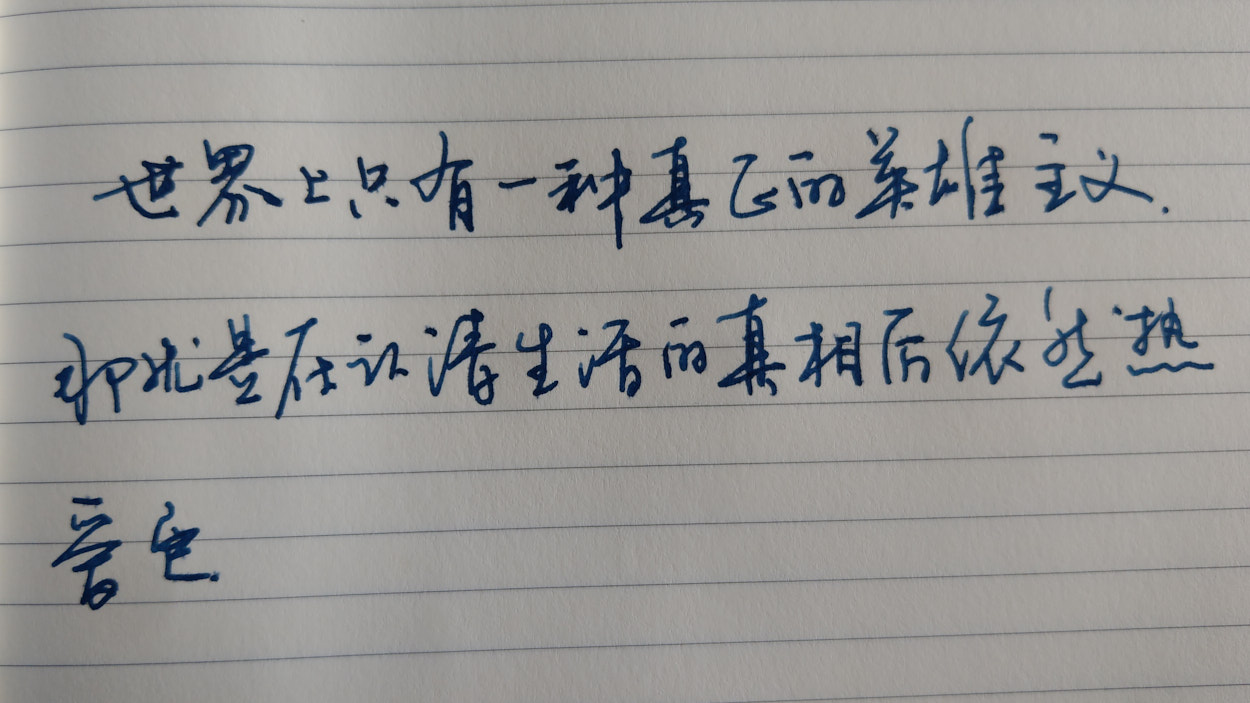 世界上只有一种真正的英雄主义.
那就是在认清生活的真相后依然热
爱它.